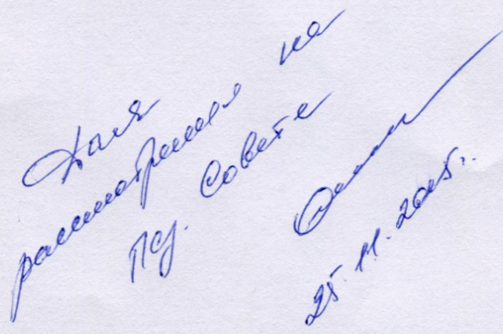 Для
рассмотрения на
Пед. Совете
25.11.2015г.